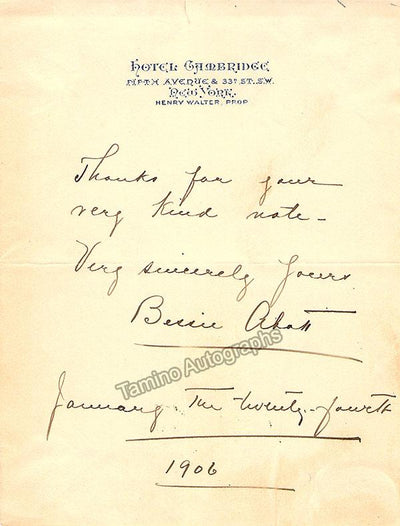 Hotel Cambridge
Fifth Avenue & 33d St. S.W.
New York.
Henry Walter, Prop
Thanks for your
very kind note -
Very sincerely yours
Bessie Abott
Tamino Autographs
January. The twenty-fourth
1906